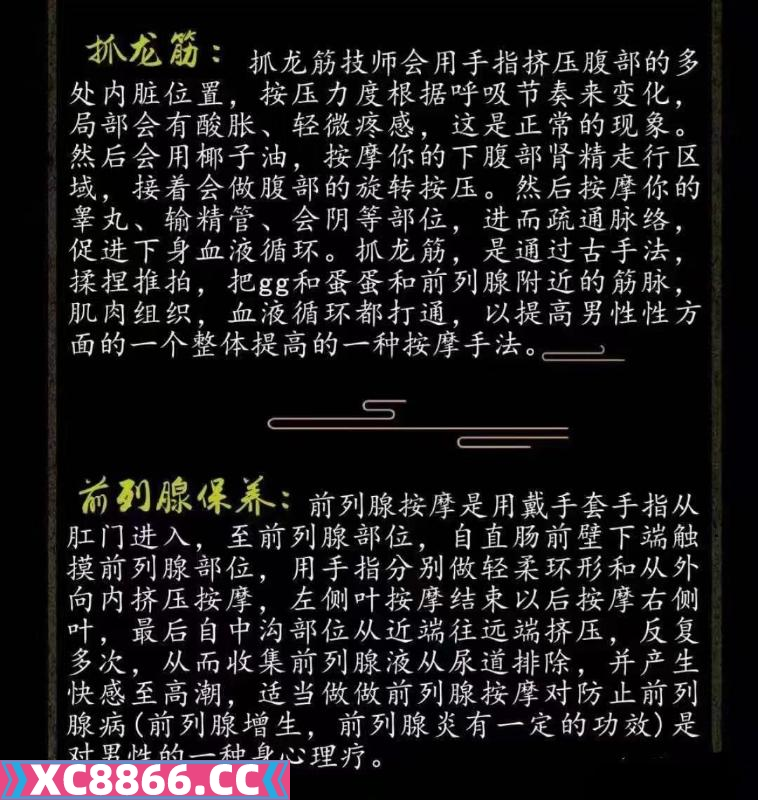 抓龙筋：抓龙筋技师会用手指挤压腹部的多
处内脏位置，按压力度根据呼吸节奏来变化，
局部会有酸胀、轻微疼感，这是正常的现象。
然后会用椰子油，按摩你的下腹部肾精走行区
域，接着会做腹部的旋转按压。然后按摩你的
睾丸、输精管、会阴等部位，进而疏通脉络，
促进下身血液循环。抓龙筋，是通过古手法，
揉捏推拍，把gg和蛋蛋和前列腺附近的筋脉，
肌肉组织，血液循环都打通，以提高男性性方
面的一个整体提高的一种按摩手法。
前列腺保养：前列腺按摩是用戴手套手指从
肛门进入，至前列腺部位，自直肠前壁下端触
摸前列腺部位，用手指分别做轻柔环形和从外
向内挤压按摩，左侧叶按摩结束以后按摩右侧
叶，最后自中沟部位从近端往远端挤压，反复
多次，从而收集前列腺液从尿道排除，并产生
快感至高潮，适当做做前列腺按摩对防止前列
腺病(前列腺增生，前列腺炎有一定的功效)是
对男性的一种身心理疗。
XC8866.CC